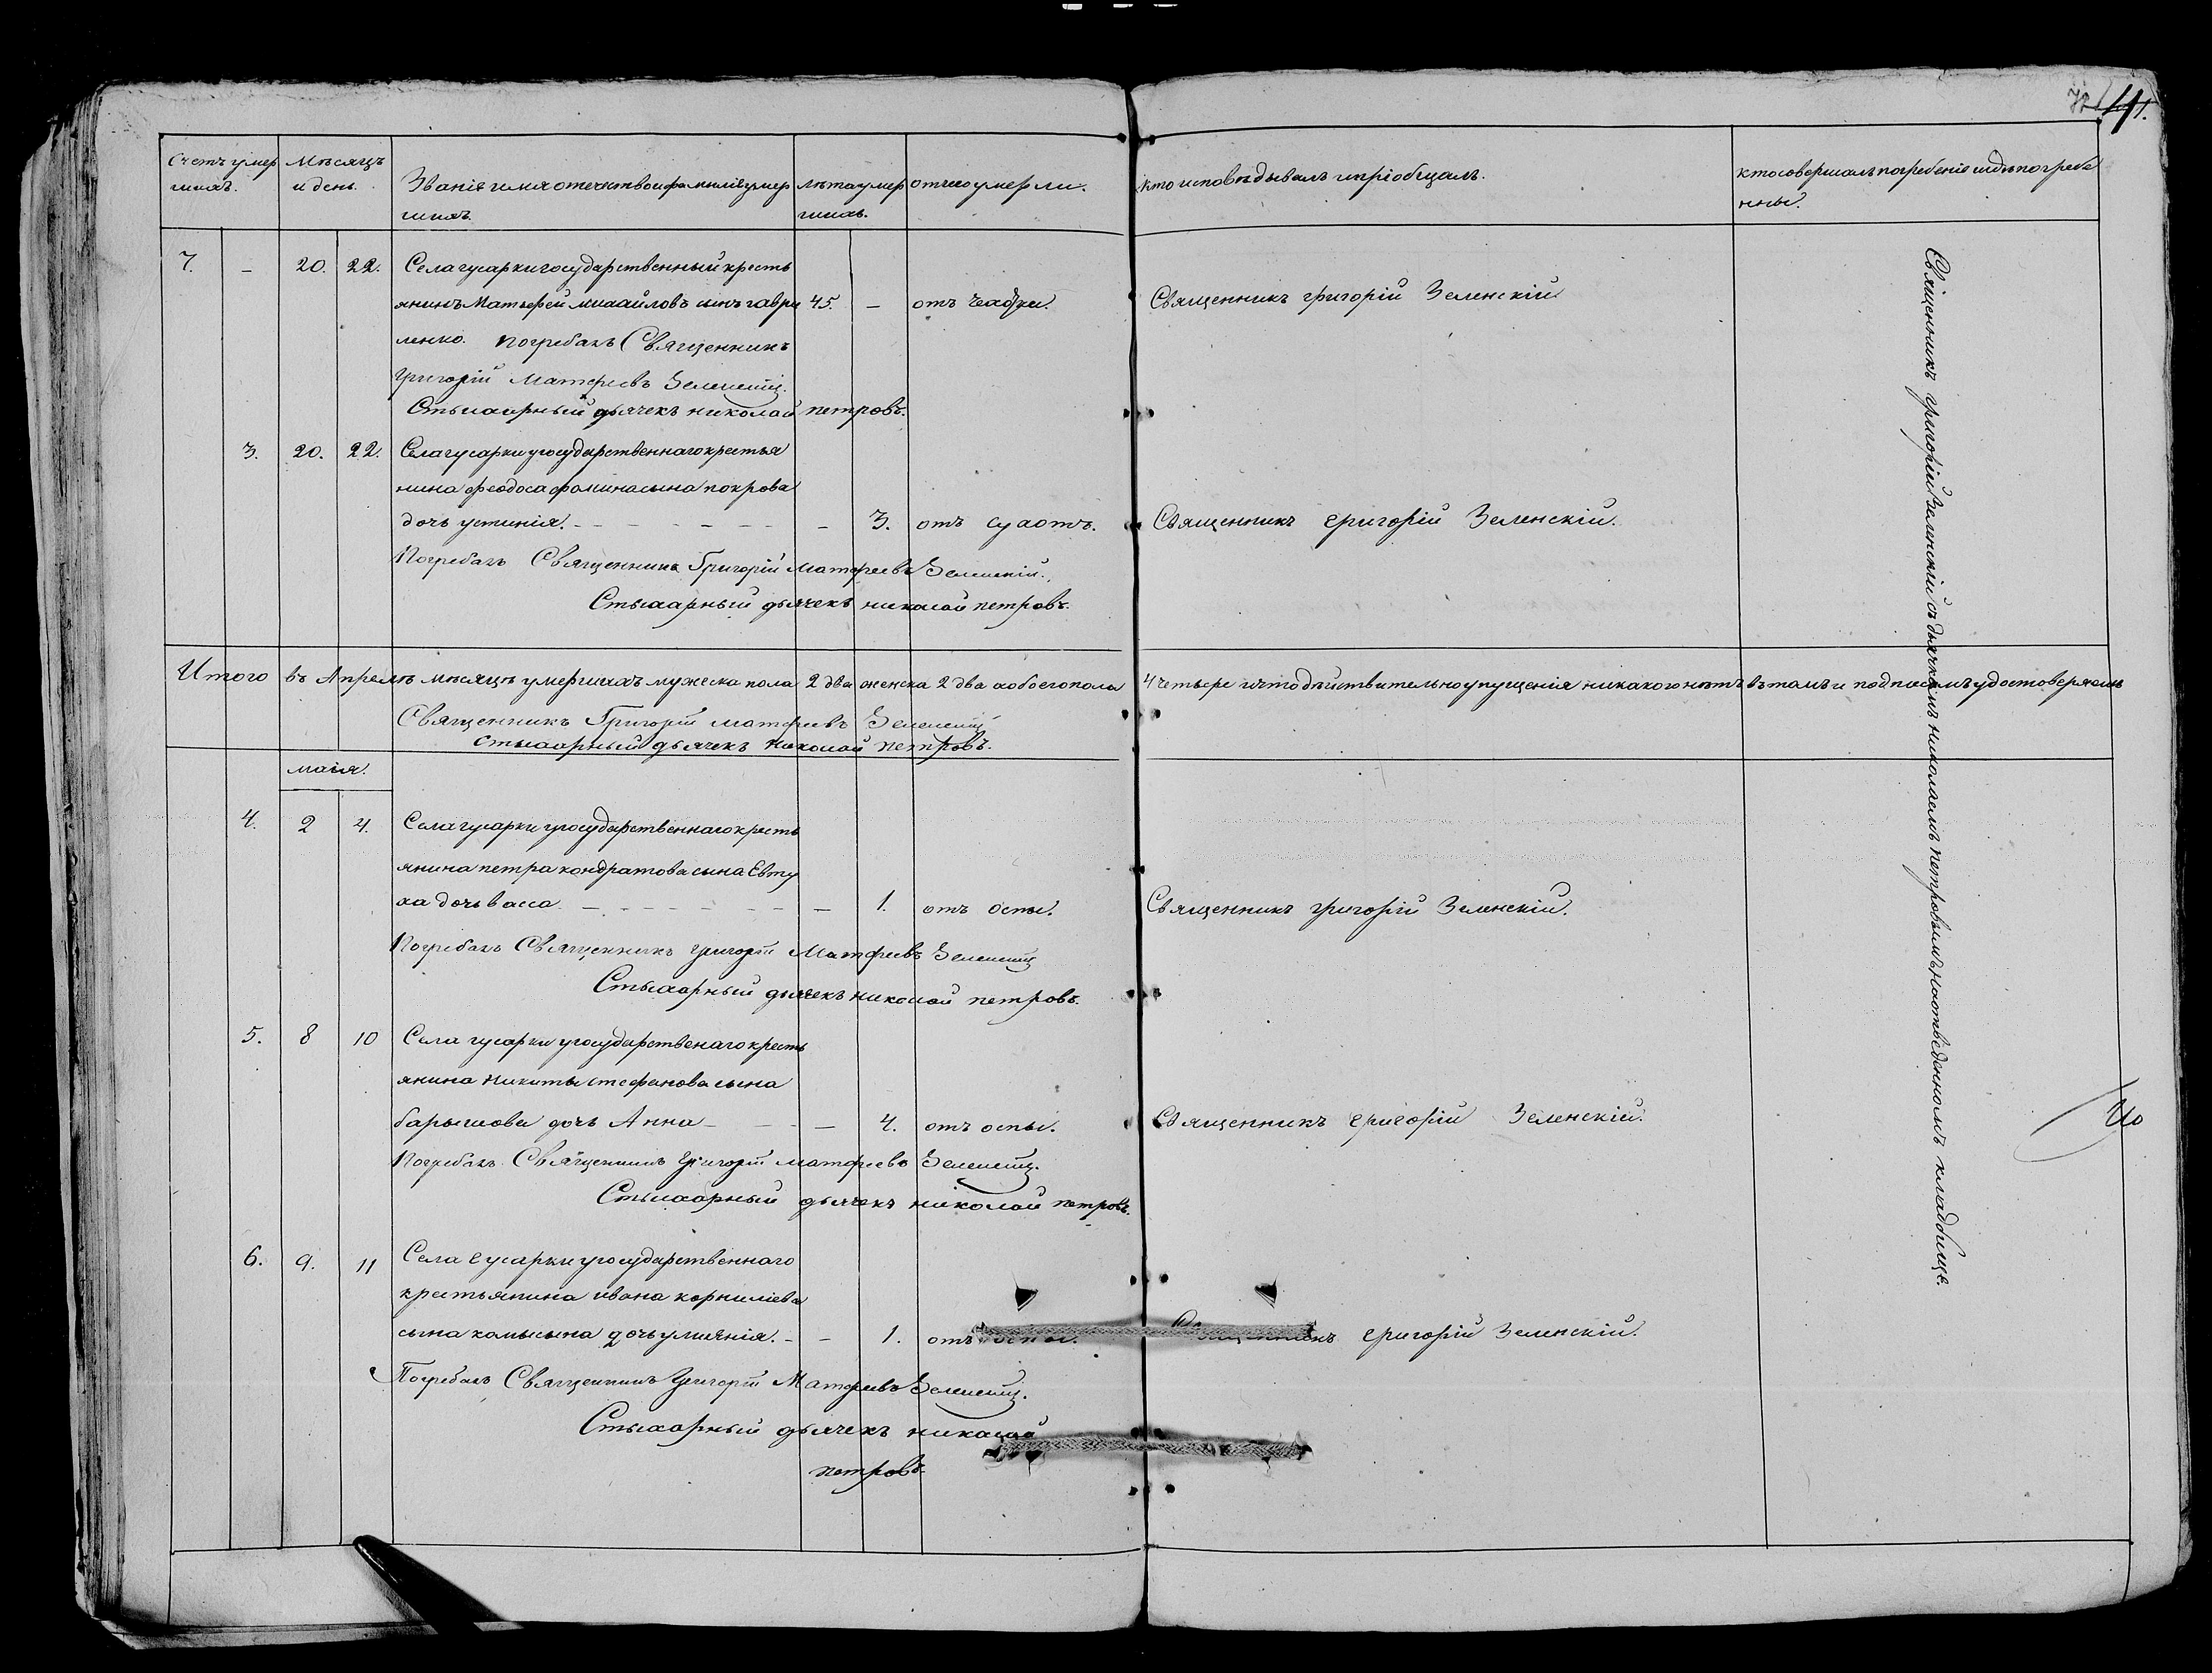 41.
Счетъ умер
шихъ.
Мѣсяцъ
и день.
Званіе имя отечество и фамилія умер
шихъ.
лѣта умер
шихъ.
отчего умерли.
кто исповѣдывалъ и пріобщалъ.
кто совершалъ погребеніе и гдѣ погребе
нны.
7. – 20. 22. Села гусарки государственный кресть
янинъ Матьфей михайловъ сынъ гаври 45. – отъ чахотки. Священникъ григорій Зеленскій
ленко. Погребалъ Священникъ
Григорій Матфеевъ Зеленскій.
Стыхарный дьячекъ николай петровъ.
3. 20. 22. Села гусарки у государственнаго крестья
нина феодоса фомина сына покрова
дочь устинія. – 3. отъ сухотъ. Священникъ григорій Зеленскій.
Погребалъ Священникъ Григорій Матфеевъ Зеленскій.
Стыхарный дьячекъ николай петровъ.
Итого въ Апрелѣ мѣсяцѣ умершихъ мужеска пола 2 два женска 2 два а обоего пола 4 четыре и что дѣйствительно упущенія никакого нѣтъ въ томъ и подписомъ удостоверяемъ
Священникъ Григорій матфеевъ Зеленскій
стыхарный дьячекъ николай петровъ.
маія.
4. 2 4. Села гусарки у государственнаго кресть
янина петра кондратова сына Евту
ха дочь васса – 1. отъ оспы. Священникъ григорій Зеленскій.
Погребалъ Священникъ григорій Матфеевъ Зеленскій
Стыхарный дьячекъ николай петровъ.
5. 8 10 Села гусарки у государственаго кресть
янина Никиты стефанова сына
барышова дочь Анна – 4. отъ оспы. Священникъ григорій Зеленскій.
Погребалъ Священникъ Григорій матфеевъ Зеленскій.
Стыхарный дьячекъ николай петровъ.
6. 9. 11 Села гусарки у государственнаго
крестьянина ивана корниліева
сына хомысына дочь – 1. отъ оспы. Священникъ григорій Зеленскій.
Погребалъ Священникъ Григорій Матфеевъ Зеленскій.
Стыхарный дьячекъ николай
петровъ.
Священникъ григорій Зеленскій съ дьячкомъ николаемъ петровымъ на отведенномъ кладбище.